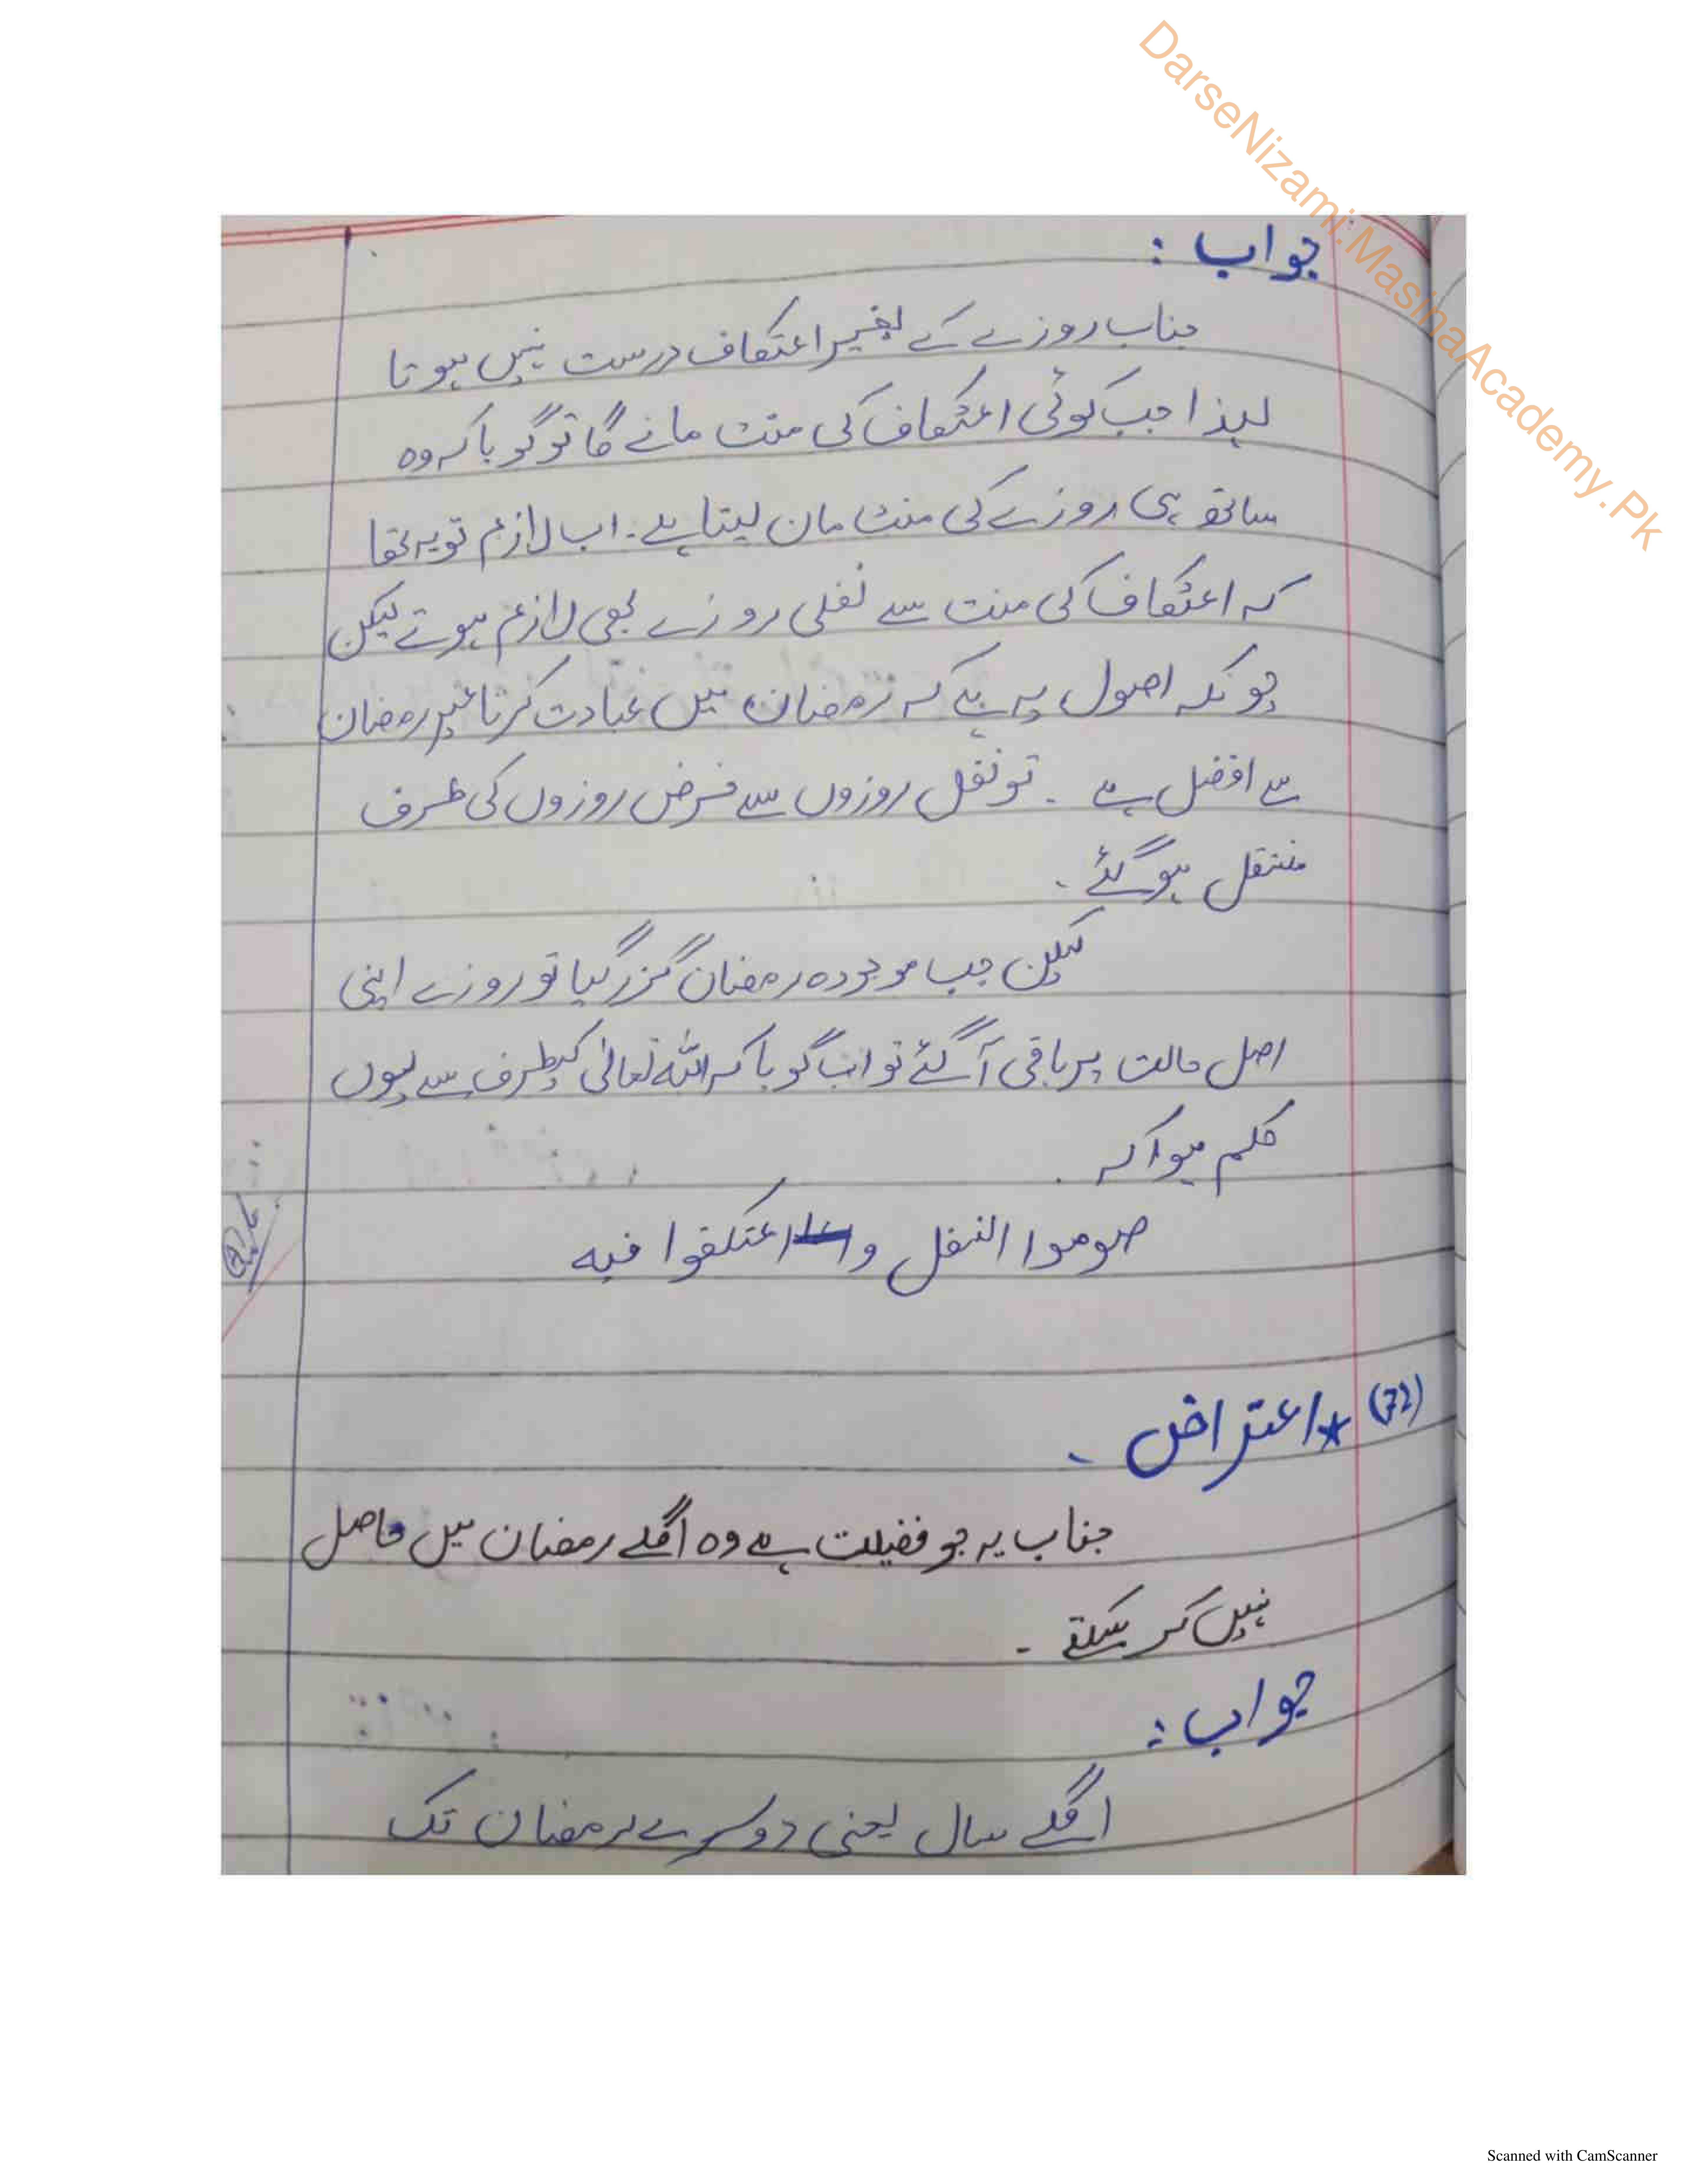 DarseNizami.MasinaAcademy.Pk
جواب :
جناب روزے کے بغیر اعتکاف درست نہیں ہوتا
لہذا جب کوئی اعتکاف کی منت مانے گا تو گویا کہ وہ
ساتھ ہی روزے کی منت مان لیتا ہے۔ اب لازم تو یہ تھا
کہ اعتکاف کی منت سے نفلی روزے بھی لازم ہوتے لیکن
چونکہ اصول یہ ہے کہ رمضان میں عبادت کرنا غیر رمضان
سے افضل ہے ۔ تو نفل روزوں سے فرض روزوں کی طرف
منتقل ہو گئے ۔
لیکن جب موجودہ رمضان گزر گیا تو روزے اپنی
اصل حالت پر باقی آ گئے تو اب گویا کہ اللہ تعالیٰ کیطرف سے یوں
حکم ہوا کہ ۔
صوموا النفل و اعتکفوا فیہ
(72) ★ اعتراض ۔
جناب یہ جو فضیلت ہے وہ اگلے رمضان میں حاصل
نہیں کر سکتے ۔
جواب :
اگلے سال یعنی دوسرے رمضان تک
Scanned with CamScanner